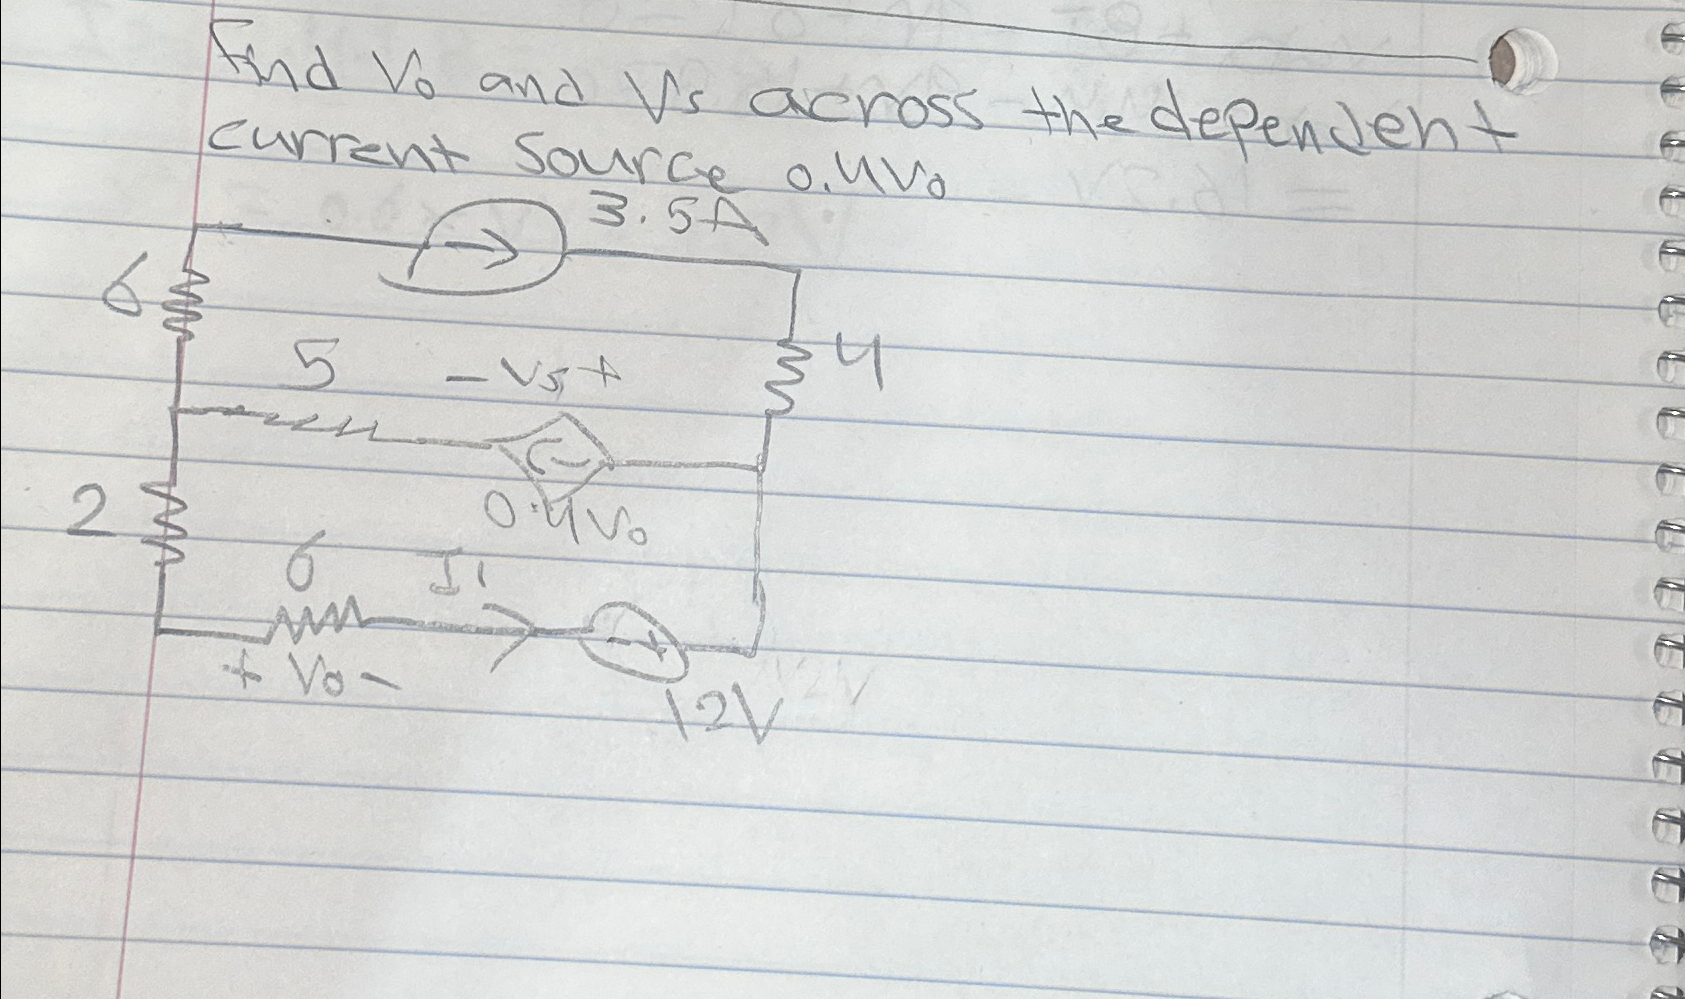 Find Vo and Vs across the dependent
current source 0.4Vo
3.5A
6
5
- Vs +
4
2
0.4Vo
6
I1
+ Vo -
- +
12V